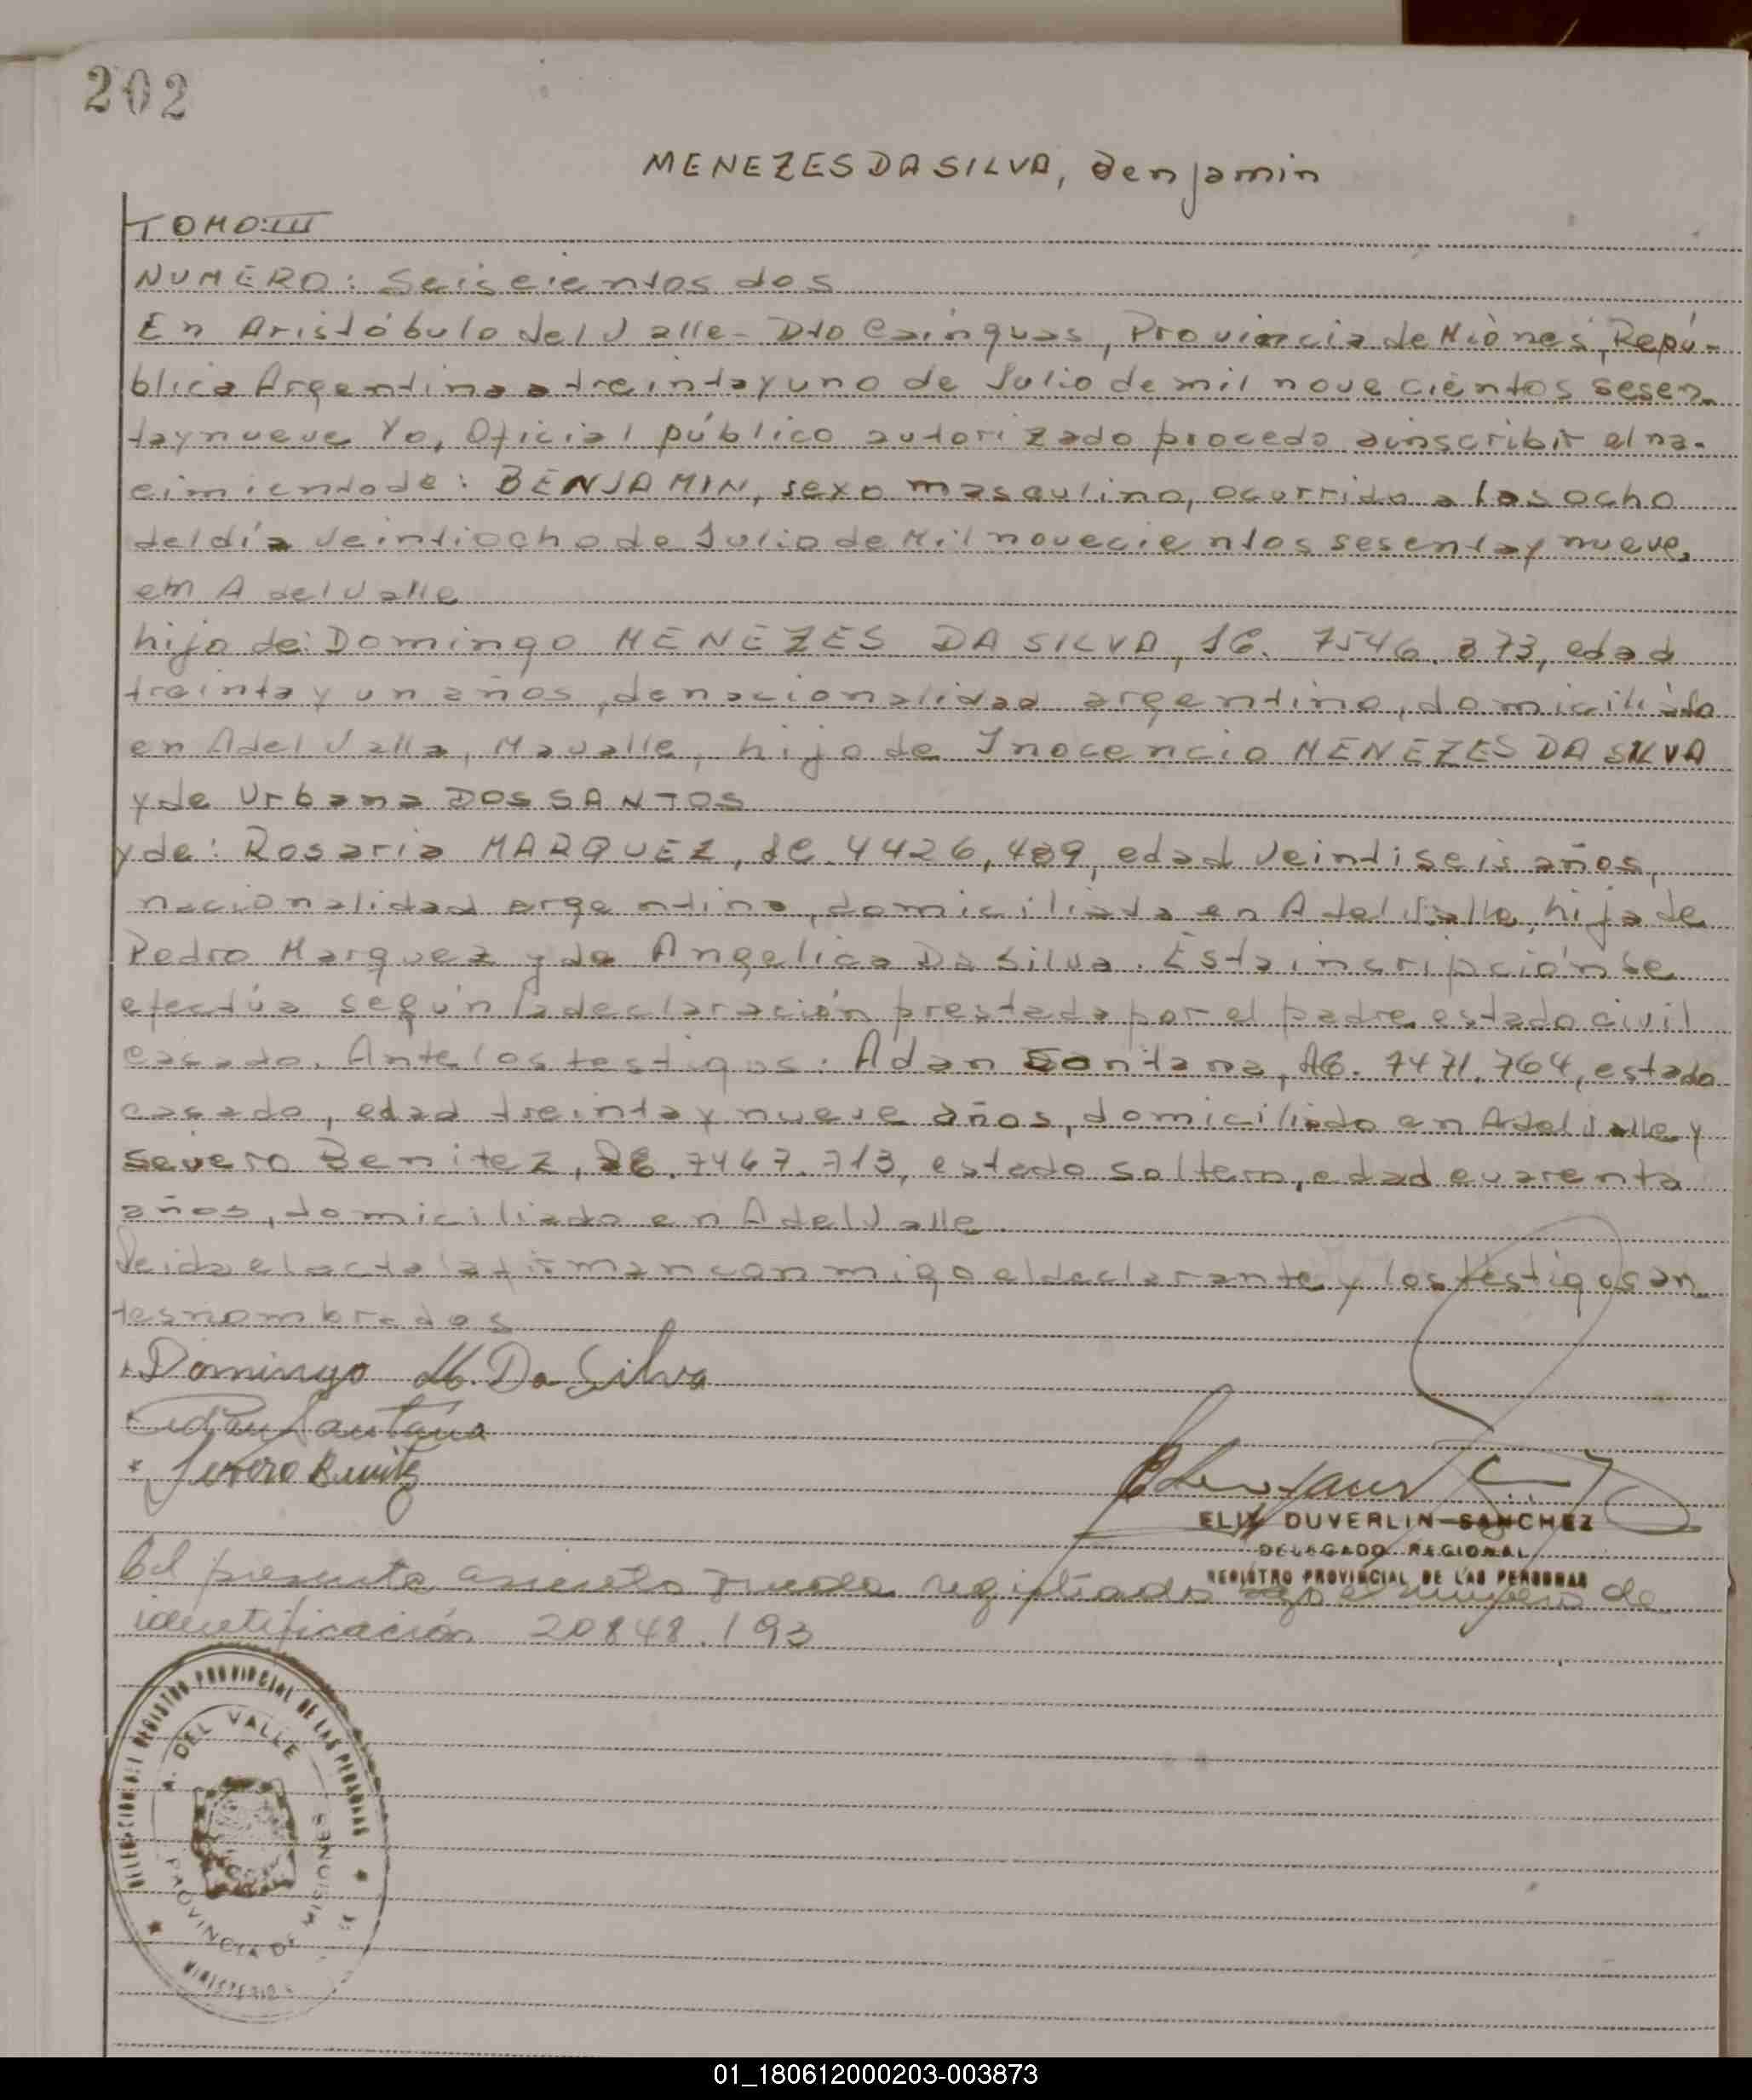 202
MENEZES DA SILVA, Benjamin
TOMO: III
NUMERO: Seiscientos dos
En Aristóbulo del Valle - Dto Cainguas, Provincia de Miones, Repú-
blica Argentina a treinta y uno de Julio de mil novecientos sesen-
ta y nueve Yo, Oficial público autorizado procedo a inscribir el na-
cimiento de: BENJAMIN, sexo masculino, ocurrido a las ocho
del día veintiocho de Julio de Mil novecientos sesenta y nueve,
em A del Valle
hijo de: Domingo MENEZES DA SILVA, 7546.873, edad
treinta y un años, de nacionalidad argentino, domiciliado
en A del Valle, Mavalle, hijo de Inocencio MENEZES DA SILVA
y de Urbana DOS SANTOS
y de: Rosaria MARQUEZ, 4426,489, edad veintiseis años,
nacionalidad argentina, domiciliada en A del Valle, hija de
Pedro Marquez y de Angelica Da Silva. Esta inscripción se
efectúa según la declaración prestada por el padre, estado civil
casado. Ante los testigos: Adan Santana, 7471.764, estado
casado, edad treinta y nueve años, domiciliado en A del Valle y
Severo Benitez, 7467.713, estado soltero, edad cuarenta
años, domiciliado en A del Valle.
Leida el acta la firman conmigo el declarante y los testigos an
tes nombrados
Domingo M. Da Silva
Adan Santana
Severo Benitez
ELIX DUVERLIN SANCHEZ
DELEGADO REGIONAL
REGISTRO PROVINCIAL DE LAS PERSONAS
El presente asiento queda registrado bajo el numero de
identificación 20848.193
DELEGACION DEL REGISTRO PROVINCIAL DE LAS PERSONAS
A. DEL VALLE
PROVINCIA DE MISIONES
MINISTERIO
01_180612000203-003873